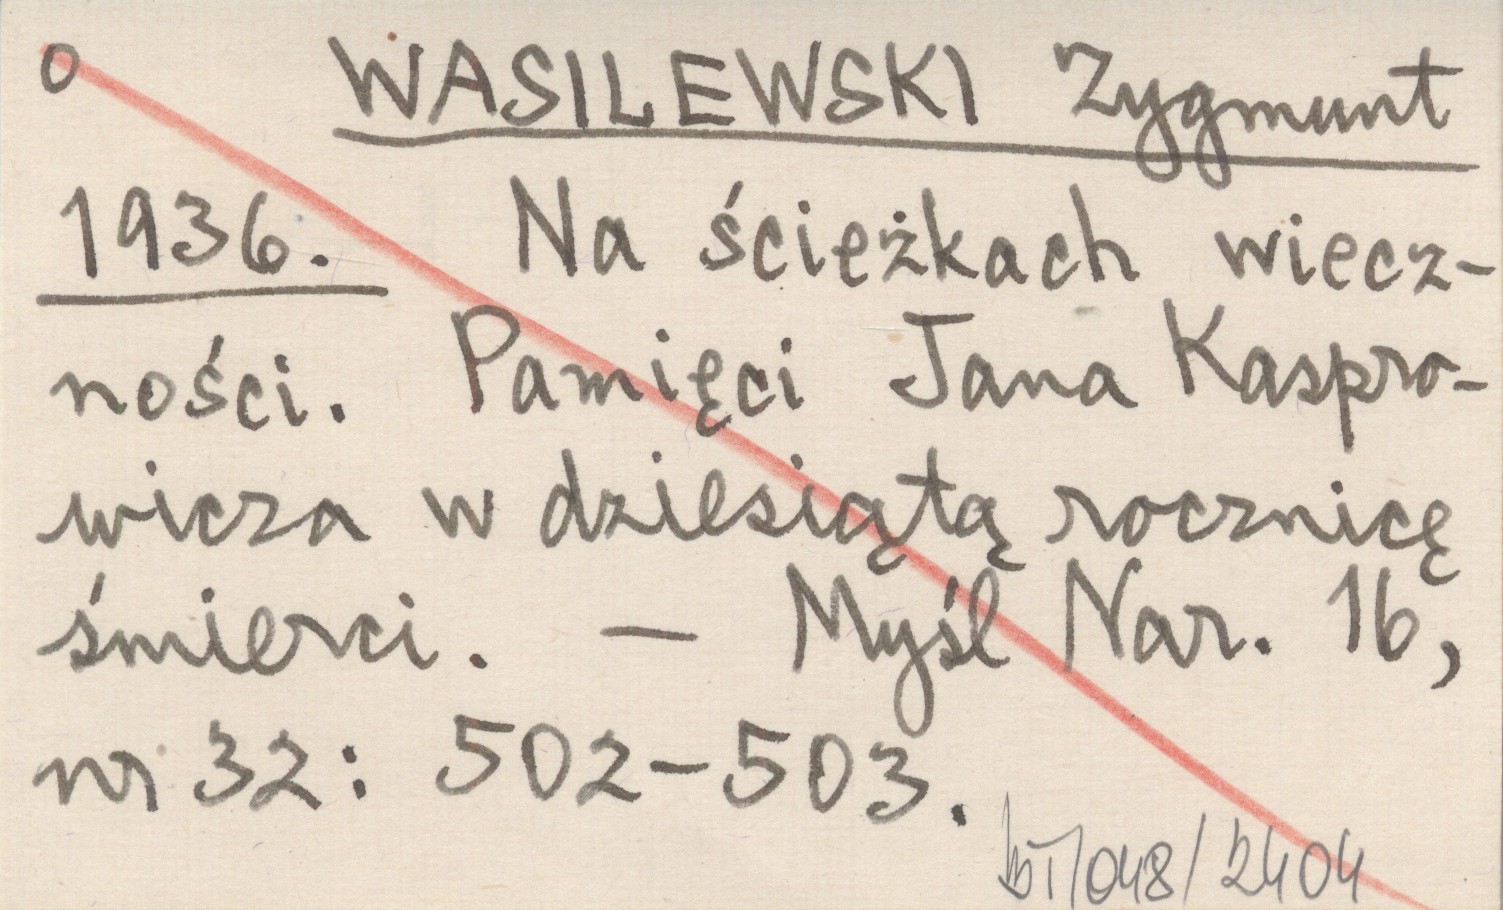 o WASILEWSKI Zygmunt
1936. Na ścieżkach wiecz-
ności. Pamięci Jana Kaspro-
wicza w dziesiątą rocznicę
śmierci. — Myśl Nar. 16,
nr 32: 502-503.
/048/2404